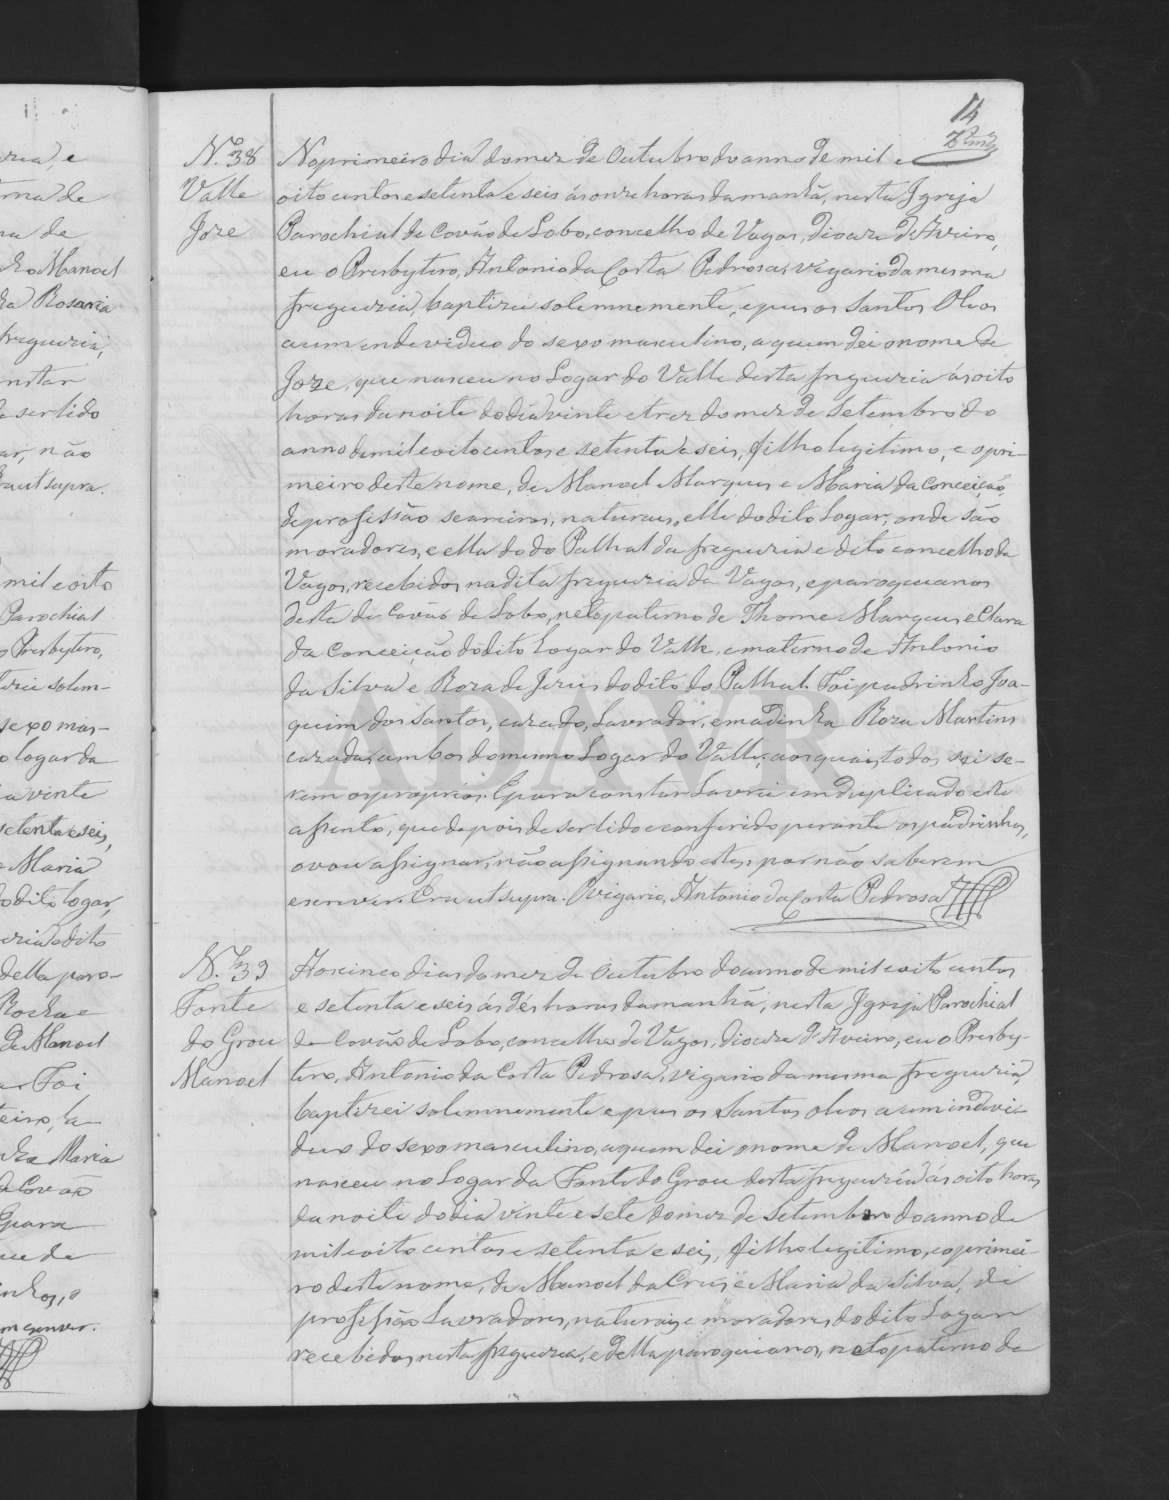 14
N.º 38
Valle
Joze
No primeiro dia do mez de Outubro do anno de mil e
oito centos e setenta e seis ás onze horas da manhã, nesta Igreja
Parochial de Covão de Lobo, concelho de Vagos, diocese d'Aveiro,
eu o Presbytero, Antonio da Costa Pedrosa, vigario da mesma
freguezia, baptizei solemnemente, e puz os Santos Oleos
a um endeviduo do sexo masculino, a quem dei o nome de
Joze, que nasceu no Logar do Valle desta freguezia ás oito
horas da noite do dia vinte e trez do mez de Setembro do
anno de mil e oito centos e setenta e seis, filho legitimo, e o pri-
meiro deste nome, de Manoel Marques e Maria da Conceição,
de profissão seareiros, naturaes, elle do dito Logar, onde são
moradores, e ella do do Palhal da freguezia e dito concelho de
Vagos, recebidos na dita freguezia de Vagos, e paroquianos
desta de Covão de Lobo, neto paterno de Thome Marques e Clara
da Conceição do dito Logar do Valle, e materno de Antonio
da Silva e Roza de Jesus do dito do Palhal. Foi padrinho Joa-
quim dos Santos, cazado, Lavrador, e madrinha Roza Martins
cazada, ambos do mesmo Logar do Valle, aos quais todos sei se-
rem os proprios. E para constar Lavrei em duplicado este
assento, que depois de ser lido e conferido perante os padrinhos,
o vou assignar, não assignando estes por não saberem
escrever. Era ut supra. O vigario, Antonio da Costa Pedrosa
N.º 39
Fonte
do Grou
Manoel
Aos cinco dias do mez de Outubro do anno de mil e oito centos
e setenta e seis ás dés horas da manhã, nesta Igreja Parochial
de Covão de Lobo, concelho de Vagos, diocese d'Aveiro, eu o Presby-
tero, Antonio da Costa Pedrosa, vigario da mesma freguezia,
baptizei solemnemente e puz os Santos oleos a um indevi-
duo do sexo masculino, a quem dei o nome de Manoel, que
nasceu no Logar da Fonte do Grou desta freguezia ás oito horas
da noite do dia vinte e sete do mez de Setembro do anno de
mil e oito centos e setenta e seis, filho legitimo, e o primei-
ro deste nome, de Manoel da Cruz e Maria da Silva, de
profissão Lavradores, naturaes e moradores do dito Logar
recebidos nesta freguezia, e della paroquianos, neto paterno de
ADAVR